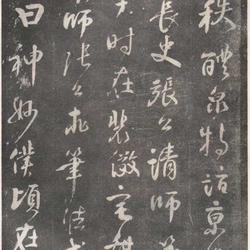 秩醴泉特詣京
長史張公請師
於時在裴儆宅憩
師張公求筆法或
曰神妙僕頃在